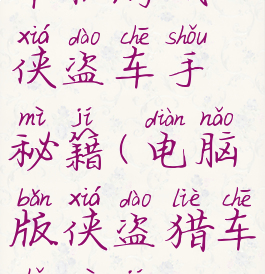 xiá dào chē shǒu
侠盗车手
mì jí diàn nǎo
秘籍(电脑
bǎn xiá dào liè chē
版侠盗猎车